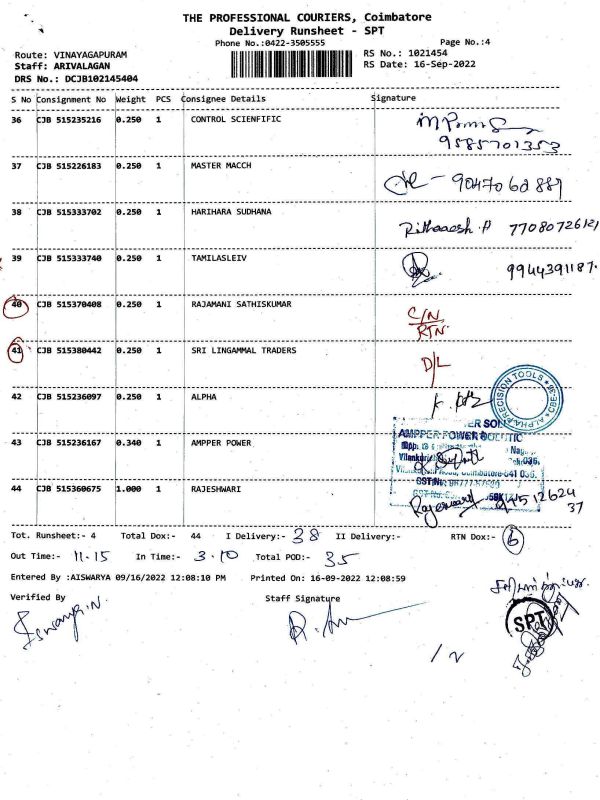 THE PROFESSIONAL COURIERS, Coimbatore
Delivery Runsheet - SPT
Phone No.:0422-3505555 Page No.:4
Route: VINAYAGAPURAM RS No.: 1021454
Staff: ARIVALAGAN RS Date: 16-Sep-2022
DRS No.: DCJB102145404
S No Consignment No Weight PCS Consignee Details Signature
36 CJB 515235216 0.250 1 CONTROL SCIENFIFIC
9585701353
37 CJB 515226183 0.250 1 MASTER MACCH
38 CJB 515333702 0.250 1 HARIHARA SUDHANA
39 CJB 515333740 0.250 1 TAMILASLEIV 9944391187.
40 CJB 515370408 0.250 1 RAJAMANI SATHISKUMAR C/N
RTN.
41 CJB 515380442 0.250 1 SRI LINGAMMAL TRADERS D/L
42 CJB 515236097 0.250 1 ALPHA
ALPHA PRECISION TOOLS
43 CJB 515236167 0.340 1 AMPPER POWER
AMPPER POWER
44 CJB 515360675 1.000 1 RAJESHWARI
Tot. Runsheet:- 4 Total Dox:- 44 I Delivery:- 38 II Delivery:- RTN Dox:- 6
Out Time:- 11.15 In Time:- 3.10 Total POD:- 35
Entered By :AISWARYA 09/16/2022 12:08:10 PM Printed On: 16-09-2022 12:08:59
Verified By Staff Signature
SPT